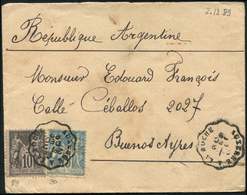 2.12.89
République Argentine
Monsieur Edouard François
Calle Céballos 2027
Buenos Ayres
10